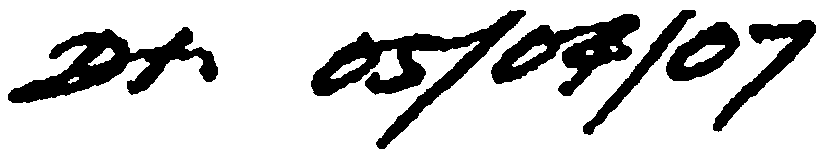 Dt. 05/04/07